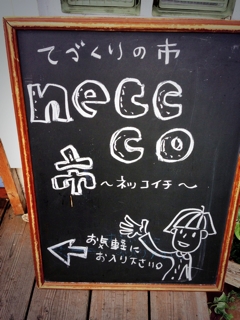 てづくりの市
necc
co
市
～ネッコイチ～
お気軽に
お入り下さい。